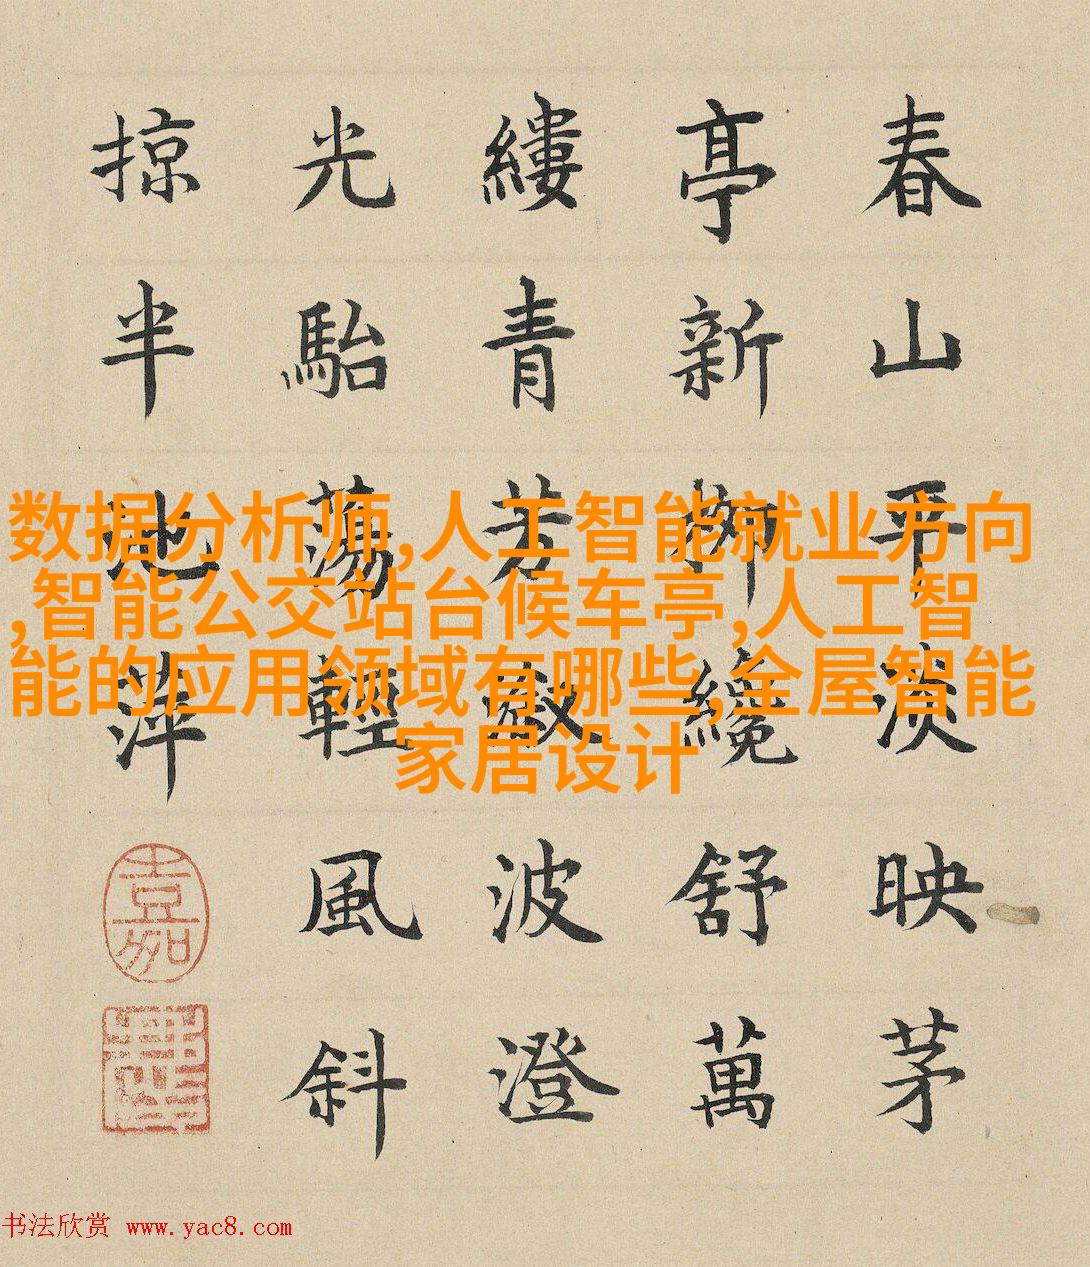 春山平淡映茅
亭新柳纔舒萬
縷青芳波澄
光駘蕩輕風斜
掠半池萍
嘉
数据分析师,人工智能就业方向
,智能公交站台候车亭,人工智
能的应用领域有哪些,全屋智能
家居设计
书法欣赏 www.yac8.com